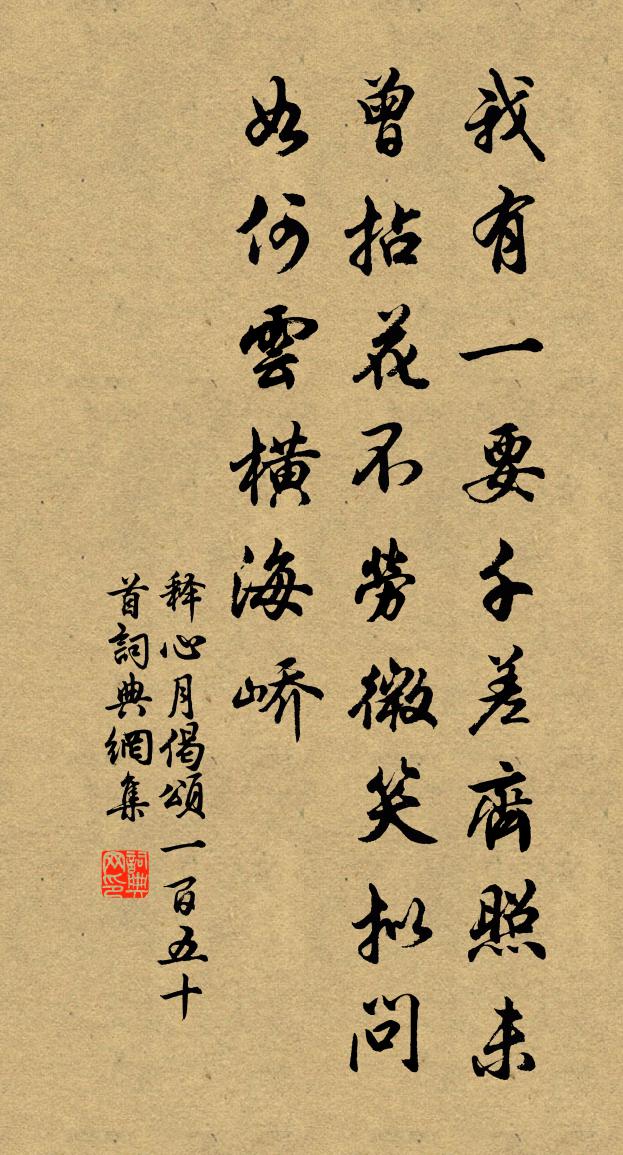 我有一要千差齊照未
曾拈花不勞微笑拟問
如何雲橫海峤
释心月偈頌一百五十
首詞典網集
詞典
网印